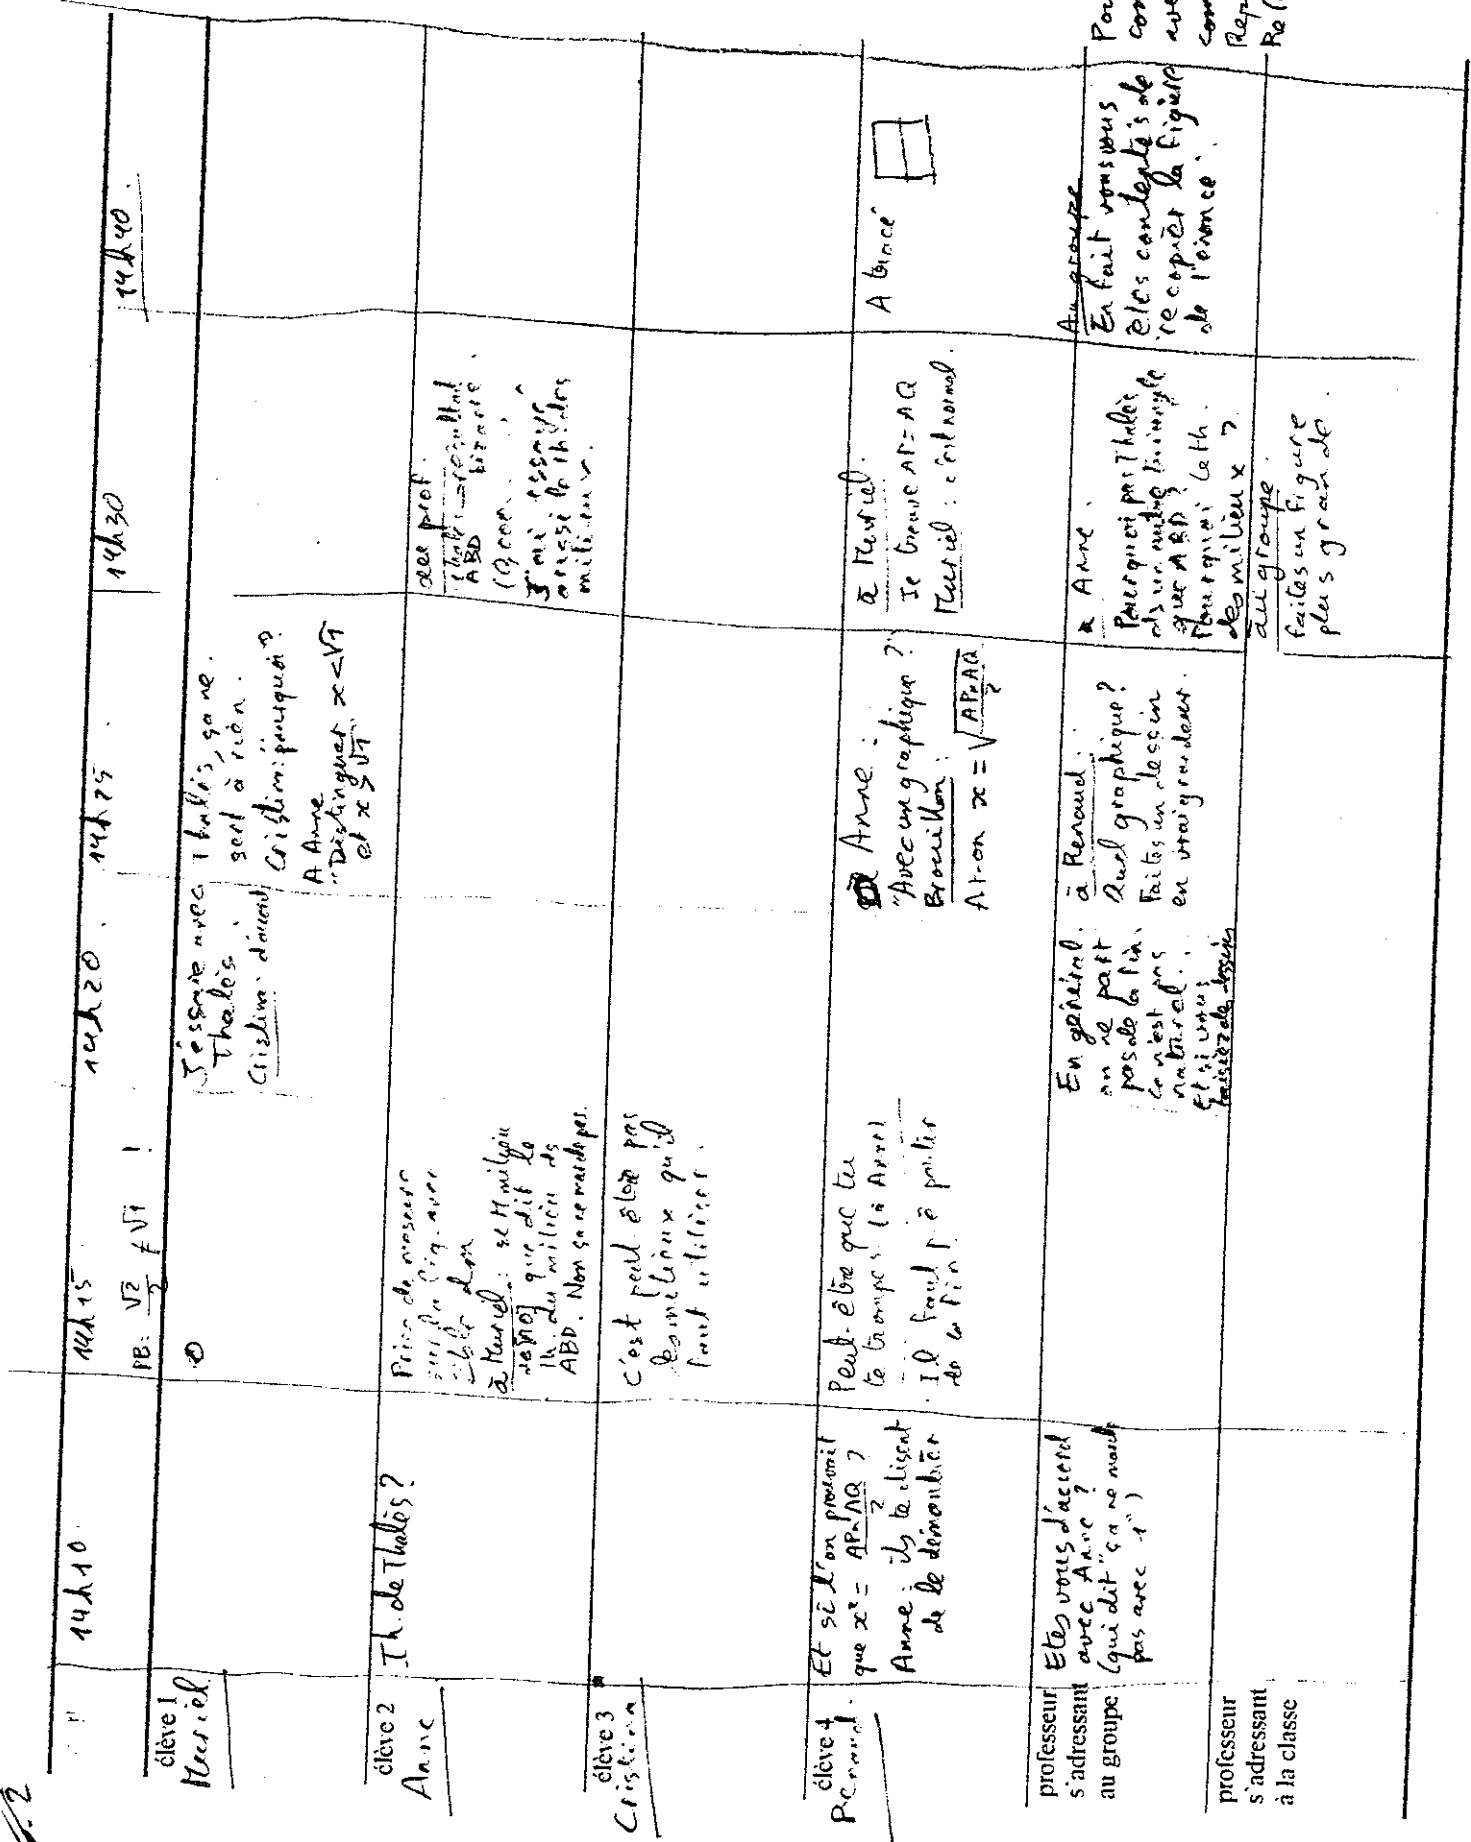 14h10
14h15
14h20
14h25
14h30
14h40
PB: √2/2 ≠ √1 !
élève 1
Muriel
J'essaie avec
Thalès
Cristina: d'accord
Thalès, ça ne
sert à rien.
Cristina: pourquoi?
A Anne
"Distinguer x<√1
et x>√1"
élève 2
Anne
Th. de Thalès?
Prise de mesure
à Muriel: si M milieu
que dit le
th. du milieu ds
ABD. Non ça ne marche pas.
au prof.
ABD résultat
bizarre.
J'ai essayé
aussi le th. des
milieux.
élève 3
Cristina
C'est peut-être pas
les milieux qu'il
faut utiliser.
élève 4
Renaud.
Et si l'on prouvait
que x² = AP×AQ/2 ?
Anne: ils te disent
de le démontrer
Peut-être que tu
te trompes (à Anne)
Il faut p-ê partir
de la fin.
Anne:
"Avec un graphique?
Brouillon:
A-t-on x = √AP×AQ/2
à Muriel.
Je trouve AP=AQ
Muriel: c'est normal.
A tracé
professeur
s'adressant
au groupe
Etes vous d'accord
avec Anne?
(qui dit "ça ne marche
pas avec 1")
En général.
on ne part
pas de la fin.
ce n'est pas
naturel..
Et si vous
faisiez de dessin
à Renaud.
Quel graphique?
Faites un dessin
en vraie grandeur.
à Anne.
Pourquoi pas Thalès
ds un autre triangle
que ABD?
Pourquoi le th.
des milieux?
Au groupe
En fait vous vous
êtes contentés de
recopier la figure
de l'énoncé.
professeur
s'adressant
à la classe
au groupe.
faites un figure
plus grande.